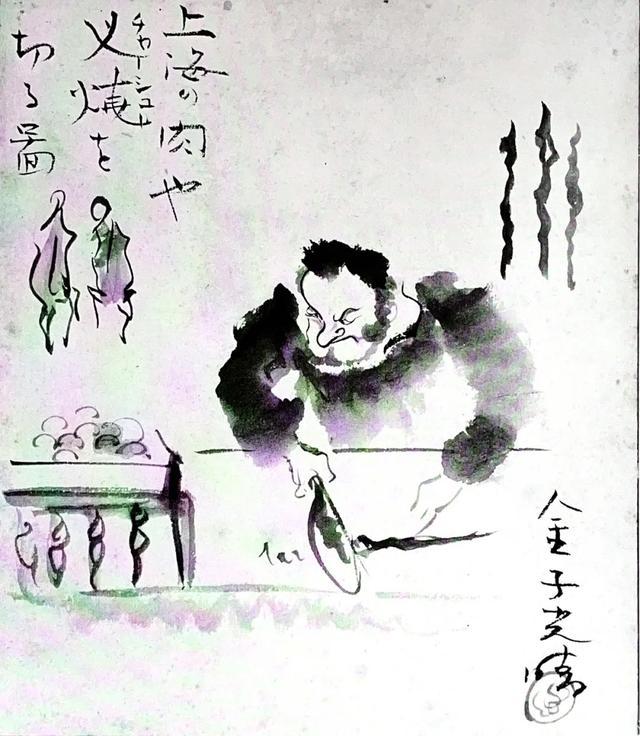 上海の肉や
チャーシュー
叉焼を
切る圖
金子光晴